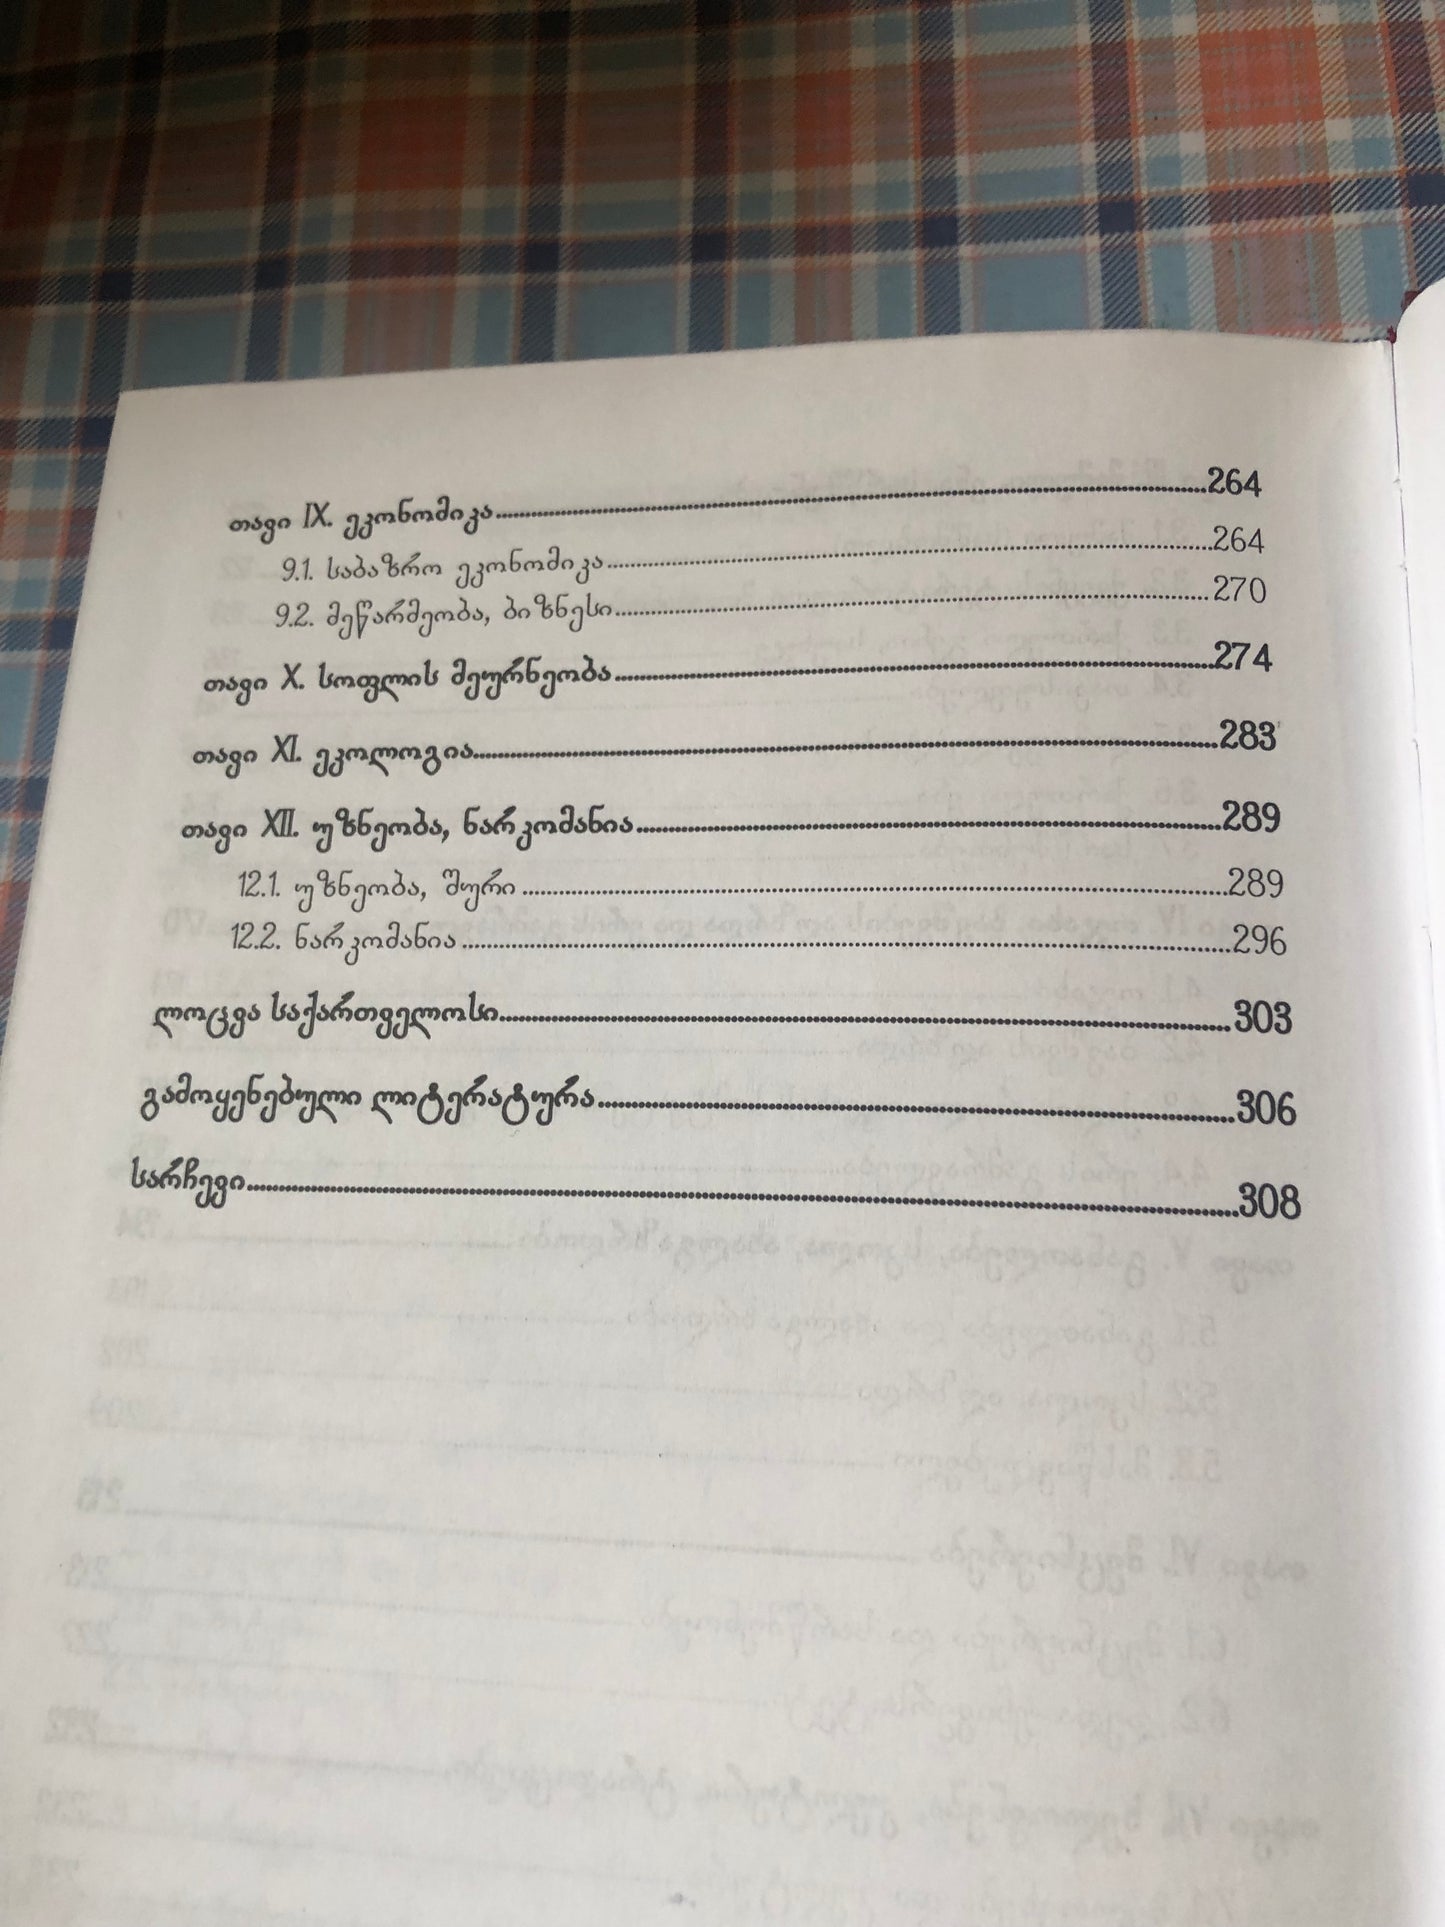 თავი IX. ეკონომიკა........264
9.1. საბაზრო ეკონომიკა........264
9.2. მეწარმეობა, ბიზნესი........270
თავი X. სოფლის მეურნეობა........274
თავი XI. ეკოლოგია........283
თავი XII. უზნეობა, ნარკომანია........289
12.1. უზნეობა, შური........289
12.2. ნარკომანია........296
ლოცვა საქართველოსი........303
გამოყენებული ლიტერატურა........306
სარჩევი........308